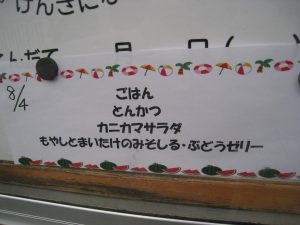 げんきに
こんだて 月 日(
8/4
ごはん
とんかつ
カニカマサラダ
もやしとまいたけのみそしる・ぶどうゼリー